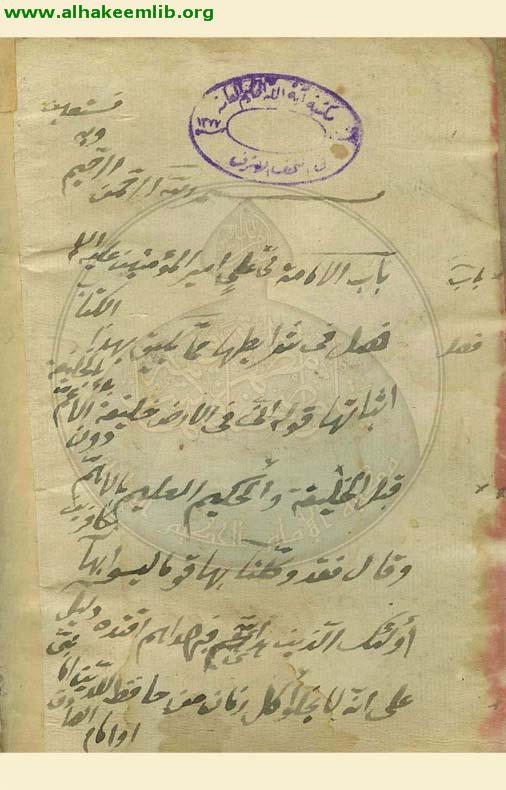 www.alhakeemlib.org
مكتبة آية الله الحكيم العامة
١٣٧٧
في النجف الاشرف
بسم الله الرحمن الرحيم
وبه نستعين
باب الامامة في علي امير المؤمنين عليه
باب
فصل في شرايطها مما يليق بهذا الكتاب
فصل
اثباتها قوله اني في الارض خليفة
قبل الخليقة والحكيم العليم
وقال فقد وكلنا بها قوما ليسوا بها بكافرين
أولئك الذين هدى فبهداهم اقتده دليل
على انه لا يخلو كل زمان من حافظ للدين اما